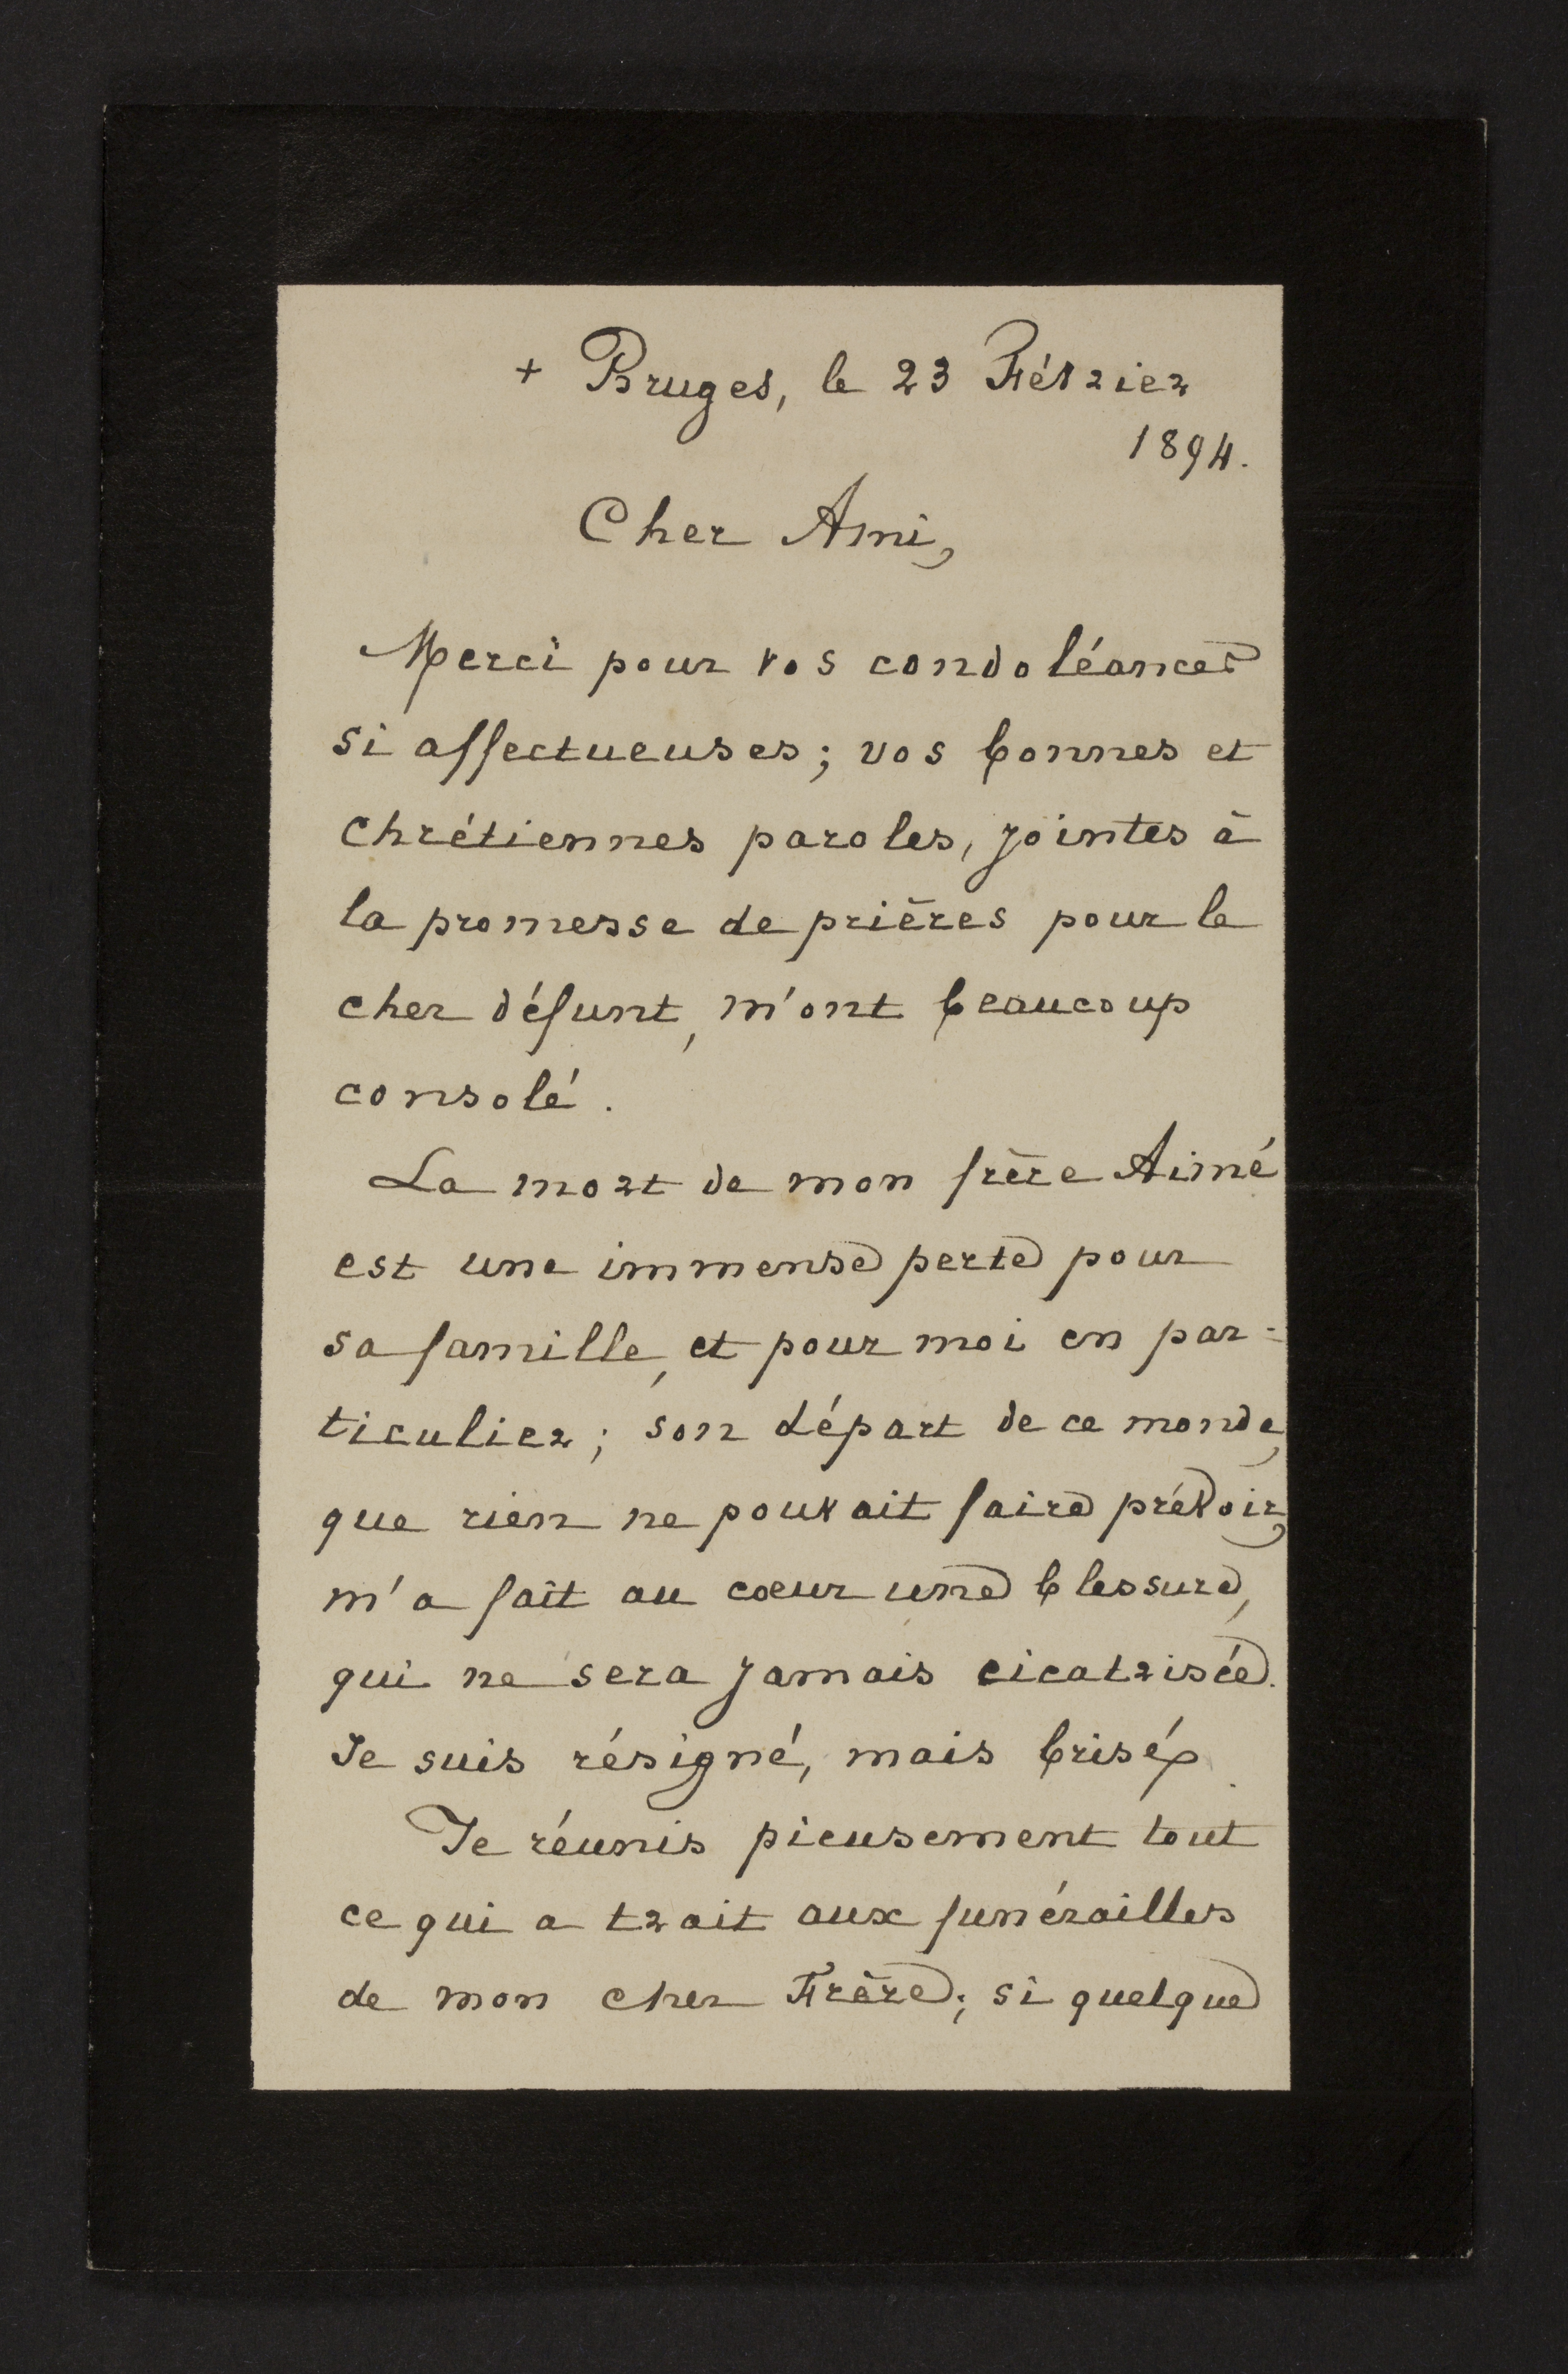 + Bruges, le 23 Février
1894.
Cher Ami,
Merci pour vos condoléances
si affectueuses; vos bonnes et
chrétiennes paroles, jointes à
la promesse de prières pour le
cher défunt, m'ont beaucoup
consolé.
La mort de mon frère Aimé
est une immense perte pour
sa famille, et pour moi en par=
ticulier; son départ de ce monde,
que rien ne pouvait faire prévoir,
m'a fait au coeur une blessure,
qui ne sera jamais cicatrisée.
Je suis résigné, mais brisé.
Je réunis pieusement tout
ce qui a trait aux funérailles
de mon cher Frère; si quelque